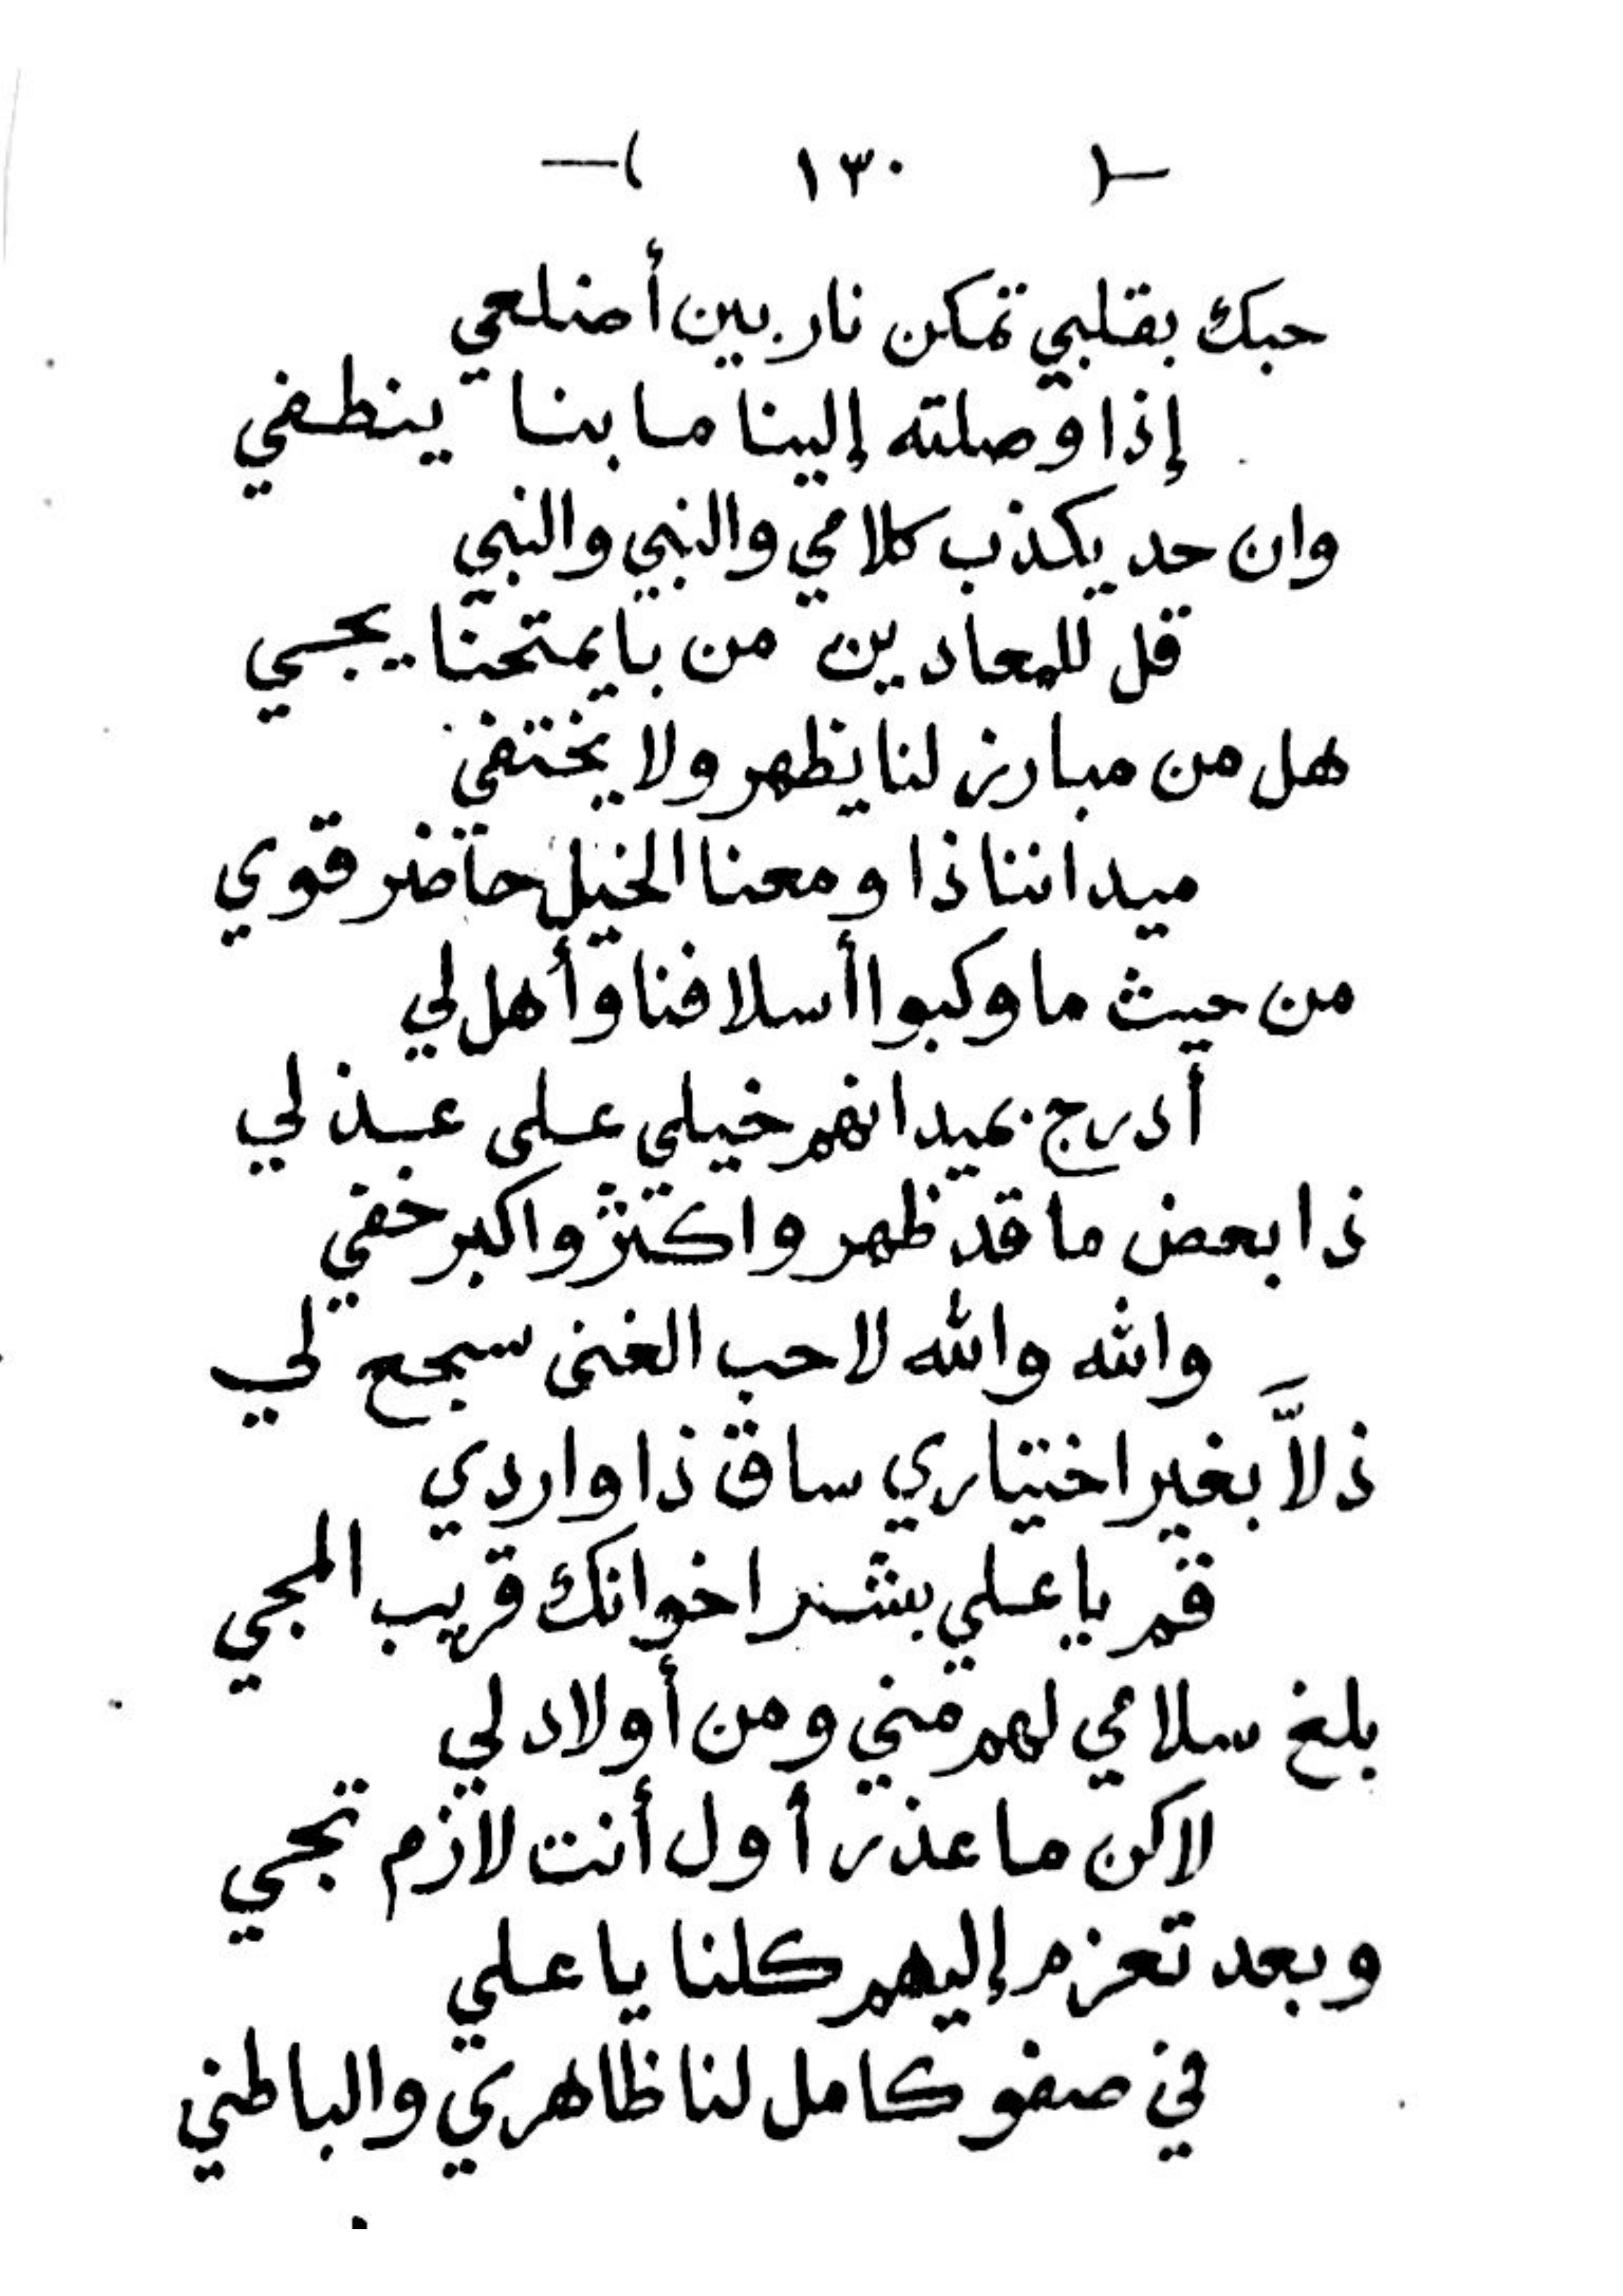 -( ١٣٠ )-
حبك بقلبي تمكن نار بين أضلعي
إذا وصلته إلينا ما بنا ينطفي
وان حد يكذب كلامي والنبي والنبي
قل للمعادين من بايمتحنا يجي
هل من مبارز لنا يظهر ولا يختفي
ميداننا ذا ومعنا الخيل حاضر قوي
من حيث ما وكبوا أسلافنا وأهل لي
أدرج بميدانهم خيلي على عذ لي
ذا بعض ما قد ظهر واكثر واكبر خفي
والله والله لا حب الغنى سجع لي
ذلاَّ بغير اختياري ساق ذا واردي
قم يا علي بشر اخوانك قريب المجي
بلغ سلامي لهم مني ومن أولاد لي
لاكن ما عذر أول أنت لازم تجي
وبعد تعزم إليهم كلنا يا علي
في صفو كامل لنا ظاهري والباطني